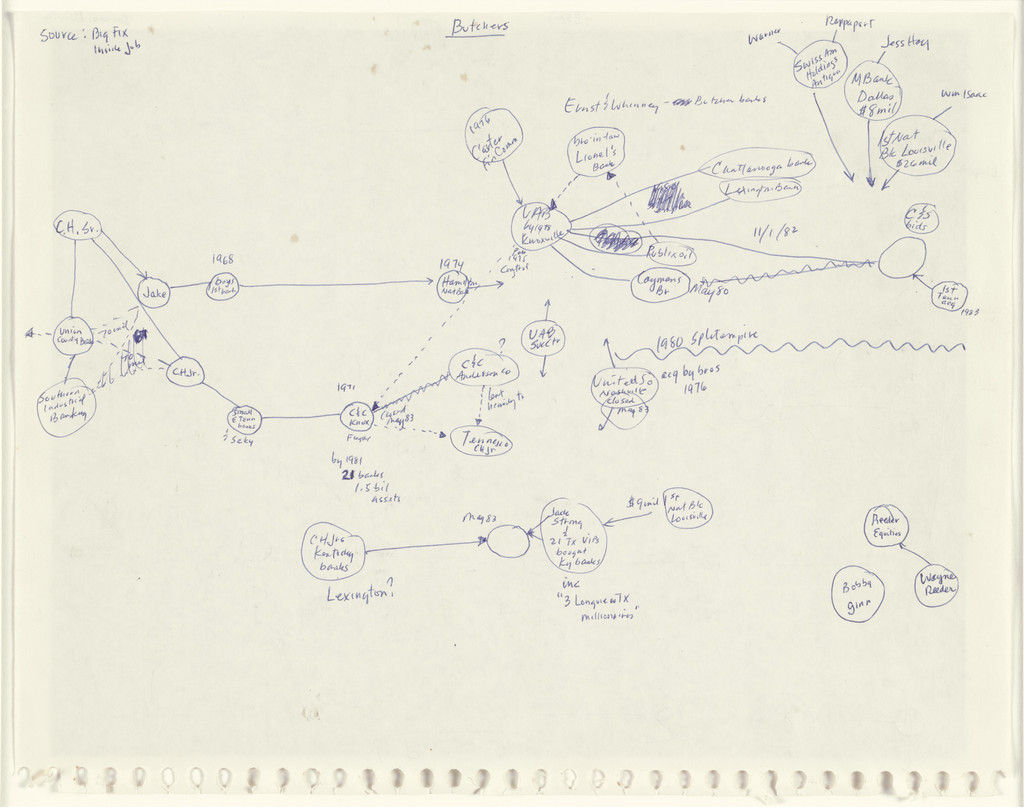 Butchers
Source: Big Fix
Inside Job
Rappaport
Warner
Swiss Am
Holdings
Antigua
Jess Hay
M Bank
Dallas
$8 mil
Wm Isaac
1st Nat
Bk Louisville
$26 mil
Ernst & Whinney - Butcher banks
1976
Carter
Fin Comm
bro-in-law
Lionel's
Bank
Chattanooga bank
Lexington Bank
UAB
Knoxville
1975
Control
Publix oil
Caymans
Br
May 80
11/1/82
C&S
bids
1st
Tenn
acq
1983
C.H. Sr.
Jake
1968
1974
Hamilton
Nat Bank
Union
County Bank
Southern
Industrial
Banking
CH Jr.
Small
E Tenn
banks
& Seky
1971
C&C
Knox
Fugar
by 1981
21 banks
1.5 bil
assets
C&C
Anderson co
?
Closed
May 83
Tennesco
CH Jr
UAB
Succtr
1980 Split empire
United So
Nashville
Closed
May 83
acq by bros
1976
CH Jrs
Kentucky
banks
Lexington?
May 83
Jade
Strong
&
21 TX VIPs
bought
Ky banks
inc
"3 Longview TX
millionaires"
$9 mil
1st
Nat Bk
Louisville
Reeder
Equities
Wayne
Reeder
Bobby
Ginn